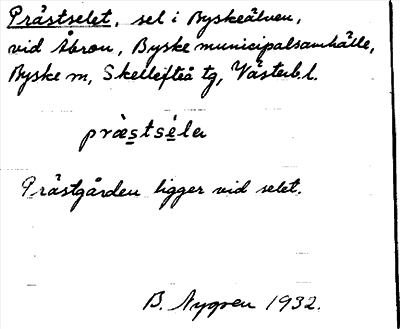 Prästselet, sel i Byskeälven,
vid Åbron, Byske municipalsamhälle,
Byske sn, Skellefteå tg, Västerb.l.
prästsélα
Prästgården ligger vid selet.
B. Nygren 1932.